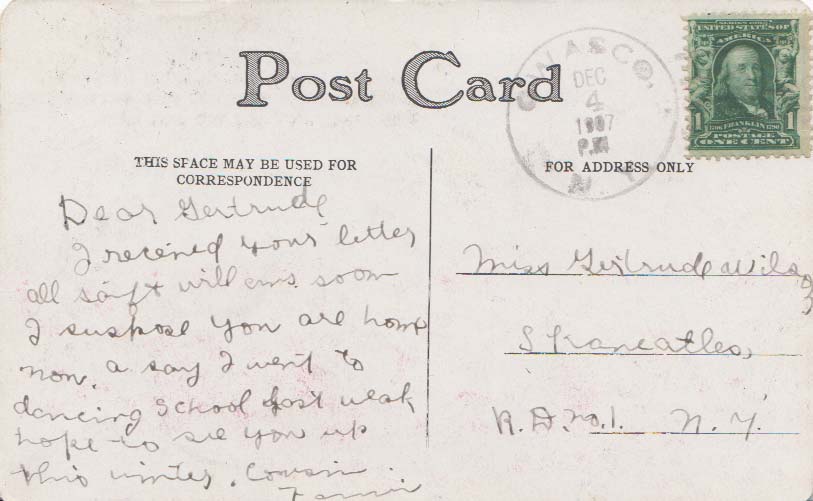 Post Card
OWASCO,
DEC
4
1907
P.M.
N. Y.
SERIES 1902
UNITED STATES OF
AMERICA
1 1
1706 FRANKLIN 1790
POSTAGE
ONE CENT
THIS SPACE MAY BE USED FOR
CORRESPONDENCE
FOR ADDRESS ONLY
Dear Gertrude
I received your letter
all saft will ans. soon
I suspose you are home
now. a say I went to
dancing school last weak
hope to see you up
this winter. Cousin
Miss Gertrude
Skaneatles,
R.D. no. 1. N.Y.